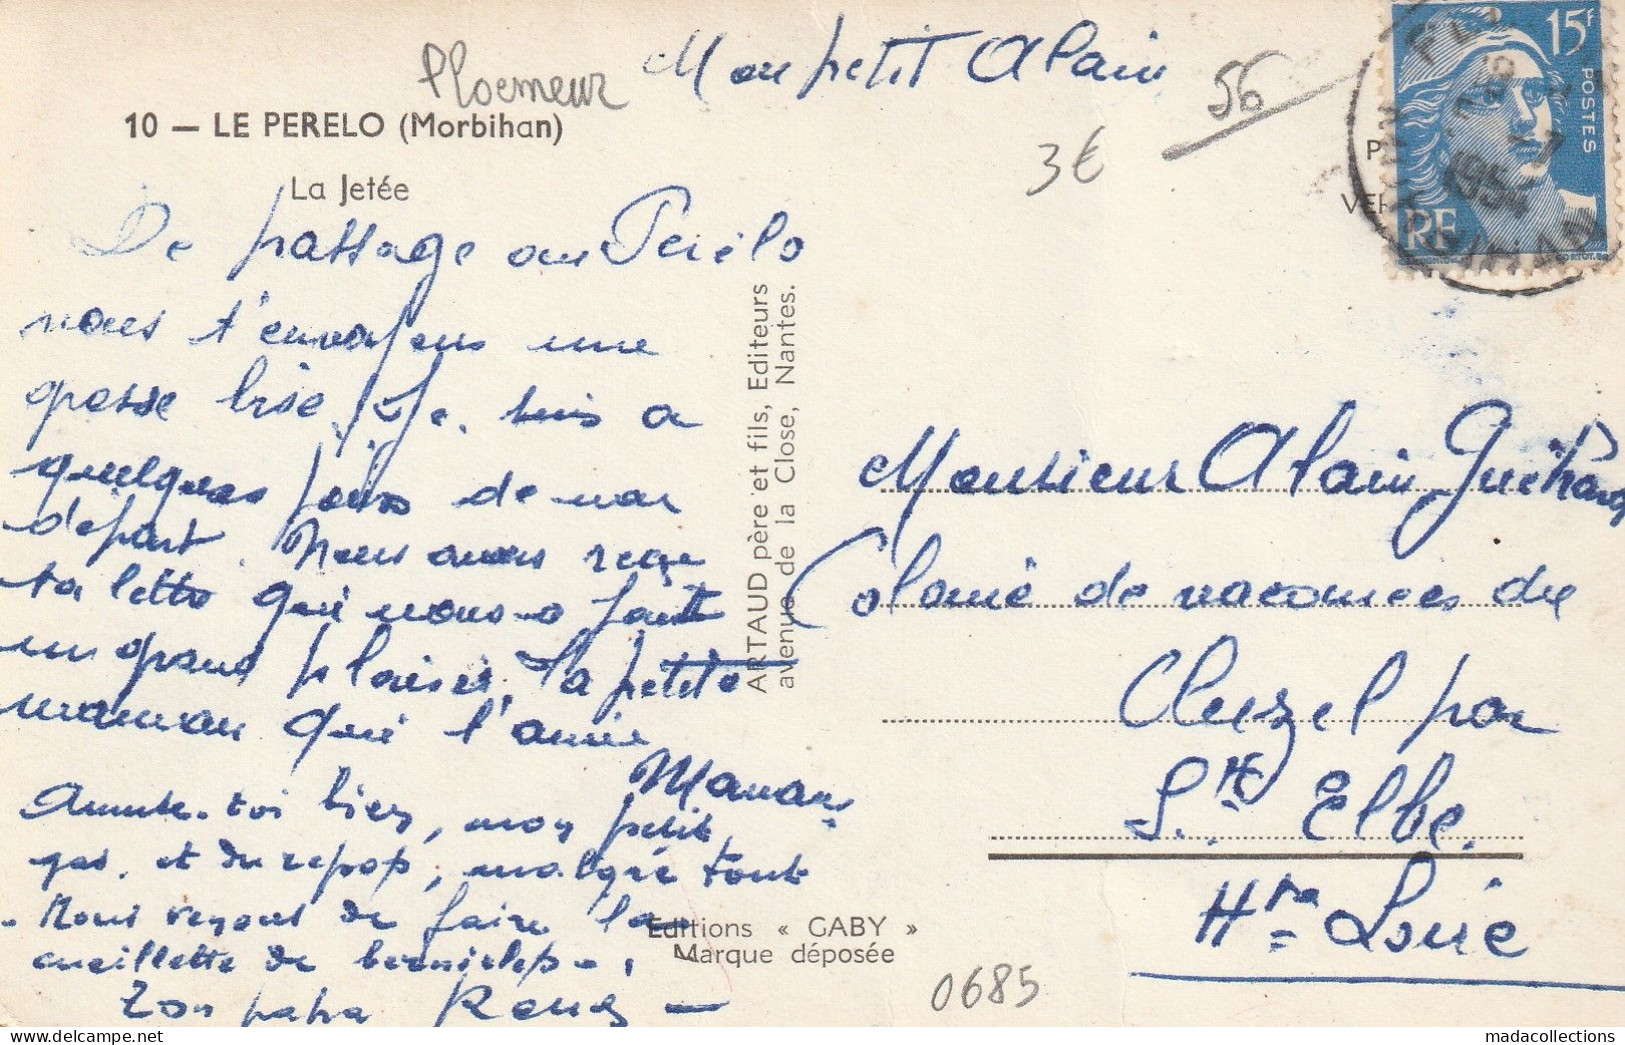 Ploemeur
Mon petit Alain
56
3€
10 — LE PERELO (Morbihan)
La Jetée
15F
POSTES
RF
1954
MORBIHAN
De passage au Perélo
nous t'envoyons une
grosse bise. Je suis à
quelques jours de mon
départ. Nous avons reçu
ta lettre qui nous a fait
un grand plaisir, ta petite
maman qui t'aime
Maman
Amuse-toi bien, mon petit
gas, et du repos, malgré tout
- Nous venons de faire la
cueillette de
Ton papa René —
ARTAUD père et fils, Editeurs
avenue de la Close, Nantes.
Monsieur Alain
Colonie de vacances du
Cluzel par
St. Elbe.
Hte Loire
Editions « GABY »
Marque déposée
0685
madacollections